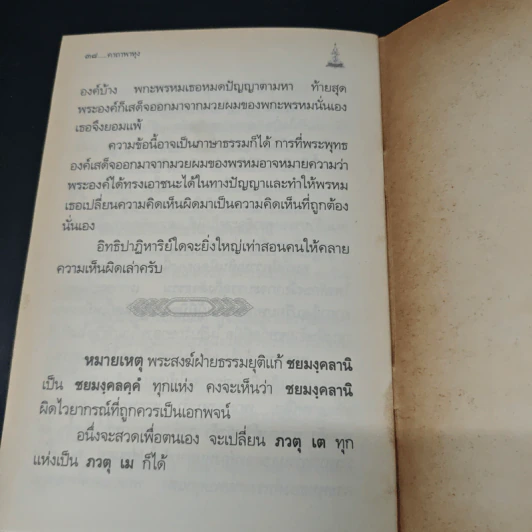 ๓๔....คาถาพาหุง
องค์บ้าง พกะพรหมเธอหมดปัญญาตามหา ท้ายสุด
พระองค์ก็เสด็จออกมาจากมวยผมของพกะพรหมนั่นเอง
เธอจึงยอมแพ้
ความข้อนี้อาจเป็นภาษาธรรมก็ได้ การที่พระพุทธ
องค์เสด็จออกมาจากมวยผมของพรหมอาจหมายความว่า
พระองค์ได้ทรงเอาชนะได้ในทางปัญญาและทำให้พรหม
เธอเปลี่ยนความคิดเห็นผิดมาเป็นความคิดเห็นที่ถูกต้อง
นั่นเอง
อิทธิปาฏิหาริย์ใดจะยิ่งใหญ่เท่าสอนคนให้คลาย
ความเห็นผิดเล่าครับ
หมายเหตุ พระสงฆ์ฝ่ายธรรมยุติแก้ ชยมงฺคลานิ
เป็น ชยมงฺคลคฺคํ ทุกแห่ง คงจะเห็นว่า ชยมงฺคลานิ
ผิดไวยากรณ์ที่ถูกควรเป็นเอกพจน์
อนึ่งจะสวดเพื่อตนเอง จะเปลี่ยน ภวตุ เต ทุก
แห่งเป็น ภวตุ เม ก็ได้